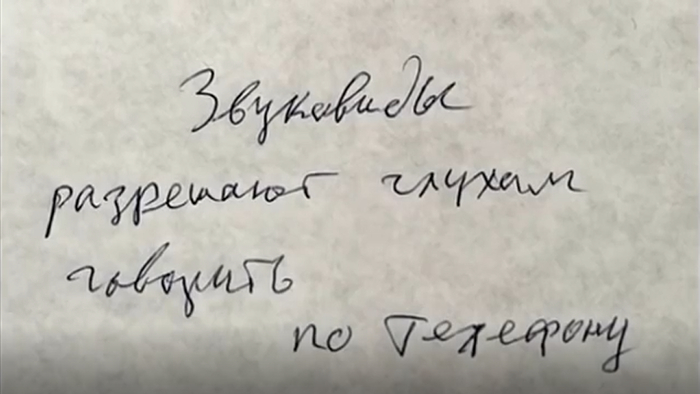 Звуковиды
разрешают глухим
говорить
по телефону